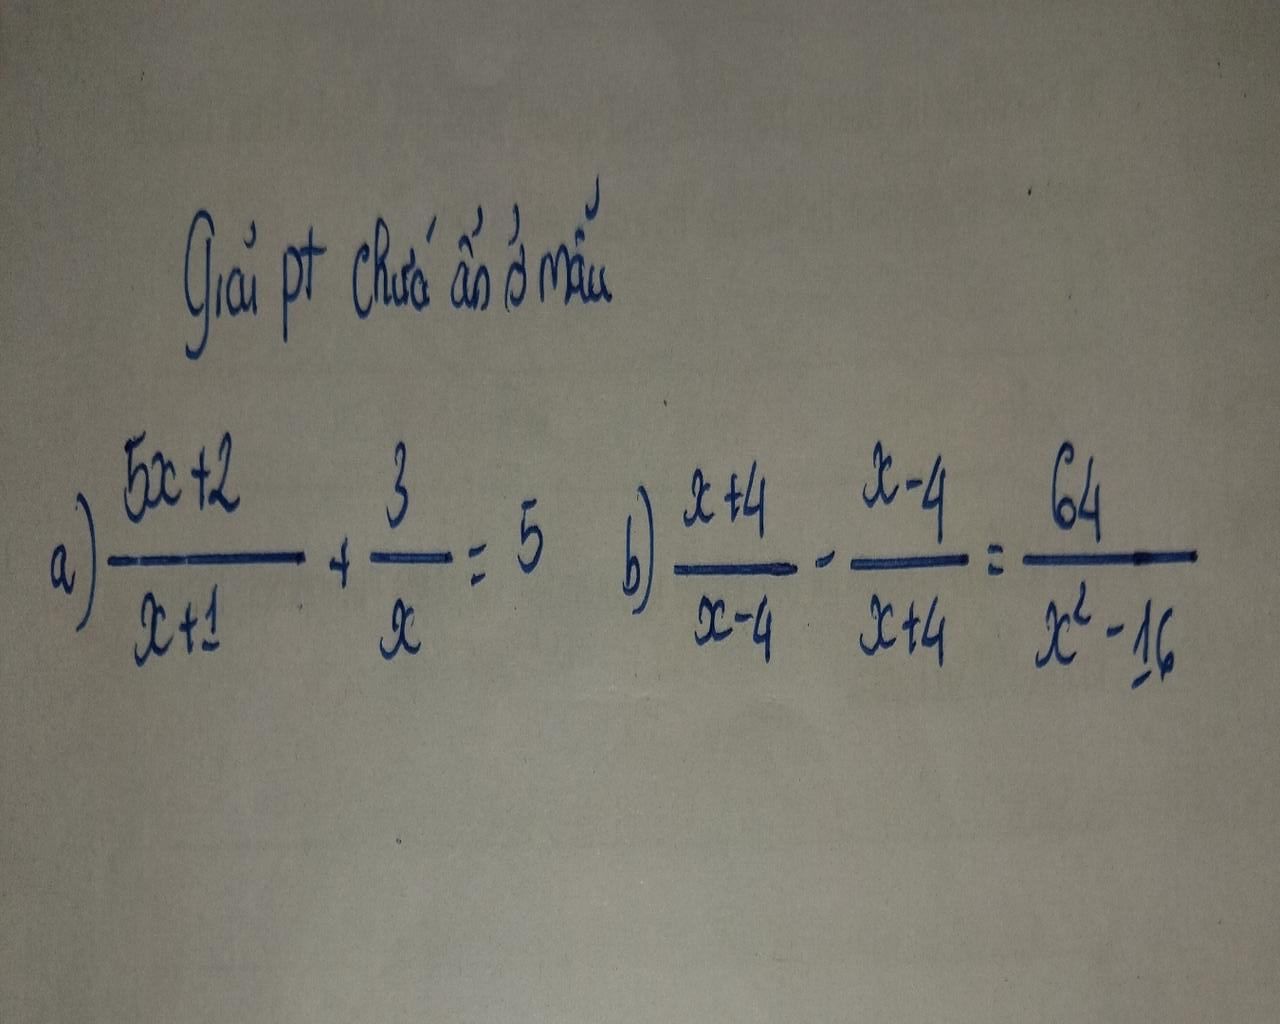 Giải pt chứá ẩn ở mẫu
a) \frac{5x+2}{x+1} + \frac{3}{x} = 5 b) \frac{x+4}{x-4} - \frac{x-4}{x+4} = \frac{64}{x^2-16}